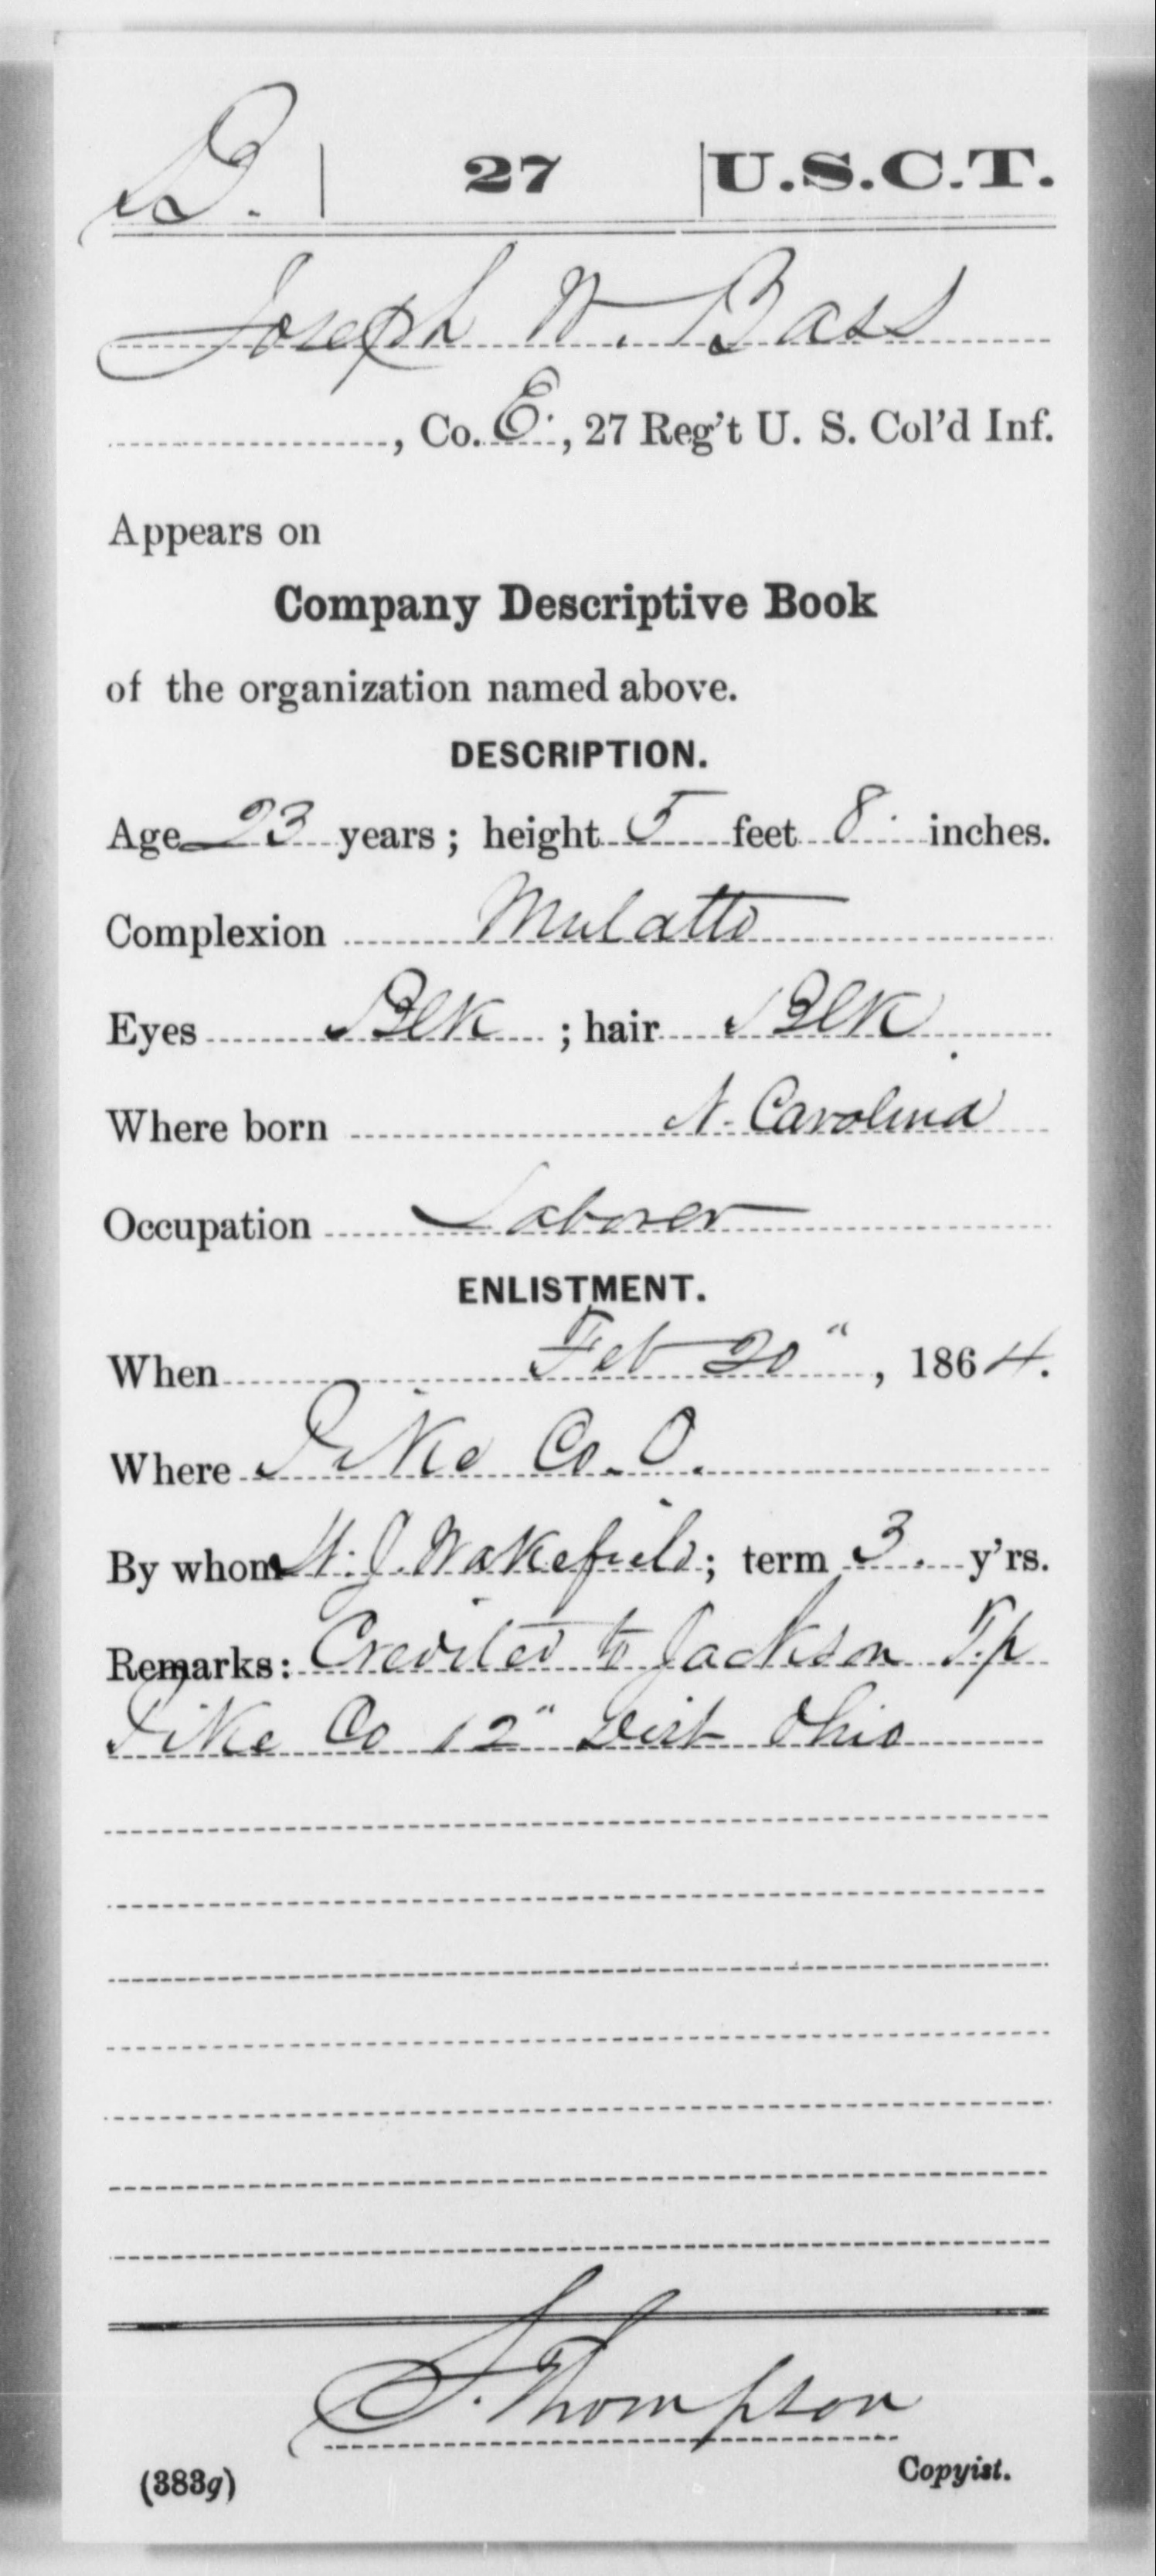 B. | 27 | U.S.C.T.
Joseph W. Bass
, Co. E., 27 Reg't U. S. Col'd Inf.
Appears on
Company Descriptive Book
of the organization named above.
DESCRIPTION.
Age 23 years; height 5 feet 8 inches.
Complexion Mulatto
Eyes Blk ; hair Blk
Where born N. Carolina
Occupation Laborer
ENLISTMENT.
When Feb 20", 1864.
Where Pike Co. O.
By whom W. J. Wakefield; term 3. y'rs.
Remarks: Credited to Jackson T.p
Pike Co 12" Dist Ohio
S. Thompson
(383g) Copyist.